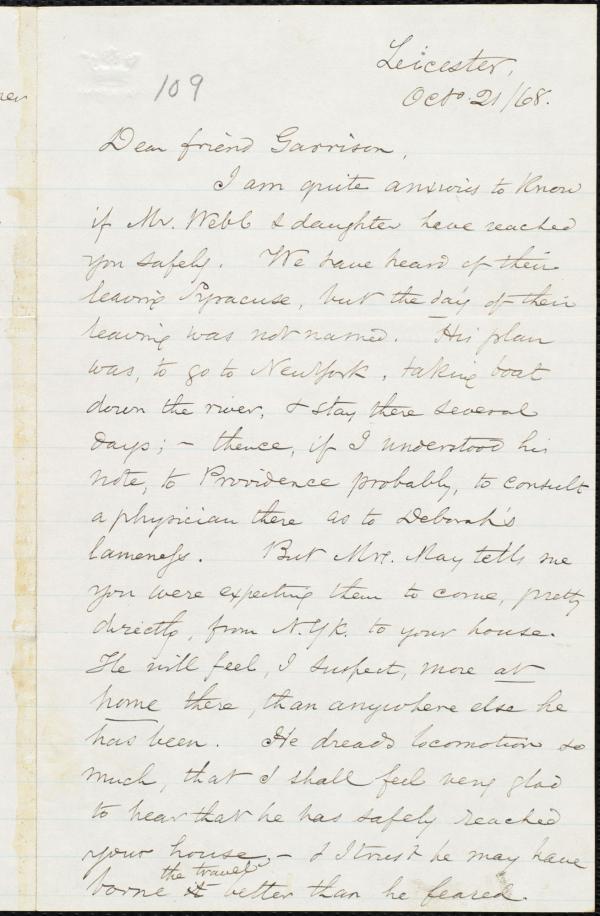 109
Leicester,
Octo 21/68.
Dear friend Garrison,
I am quite anxious to know
if Mr. Webb & daughter have reached
you safely. We have heard of their
leaving Syracuse, but the day of their
leaving was not named. His plan
was, to go to New York, taking boat
down the river, & stay there several
days; – thence, if I understood his
note, to Providence probably, to consult
a physician there as to Deborah's
lameness. But Mrs. May tells me
you were expecting them to come, pretty
directly, from N.Yk. to your house.
He will feel, I suspect, more at
home there, than anywhere else he
has been. He dreads locomotion so
much, that I shall feel very glad
to hear that he has safely reached
your house, – & I trust he may have
borne the travel better than he feared.